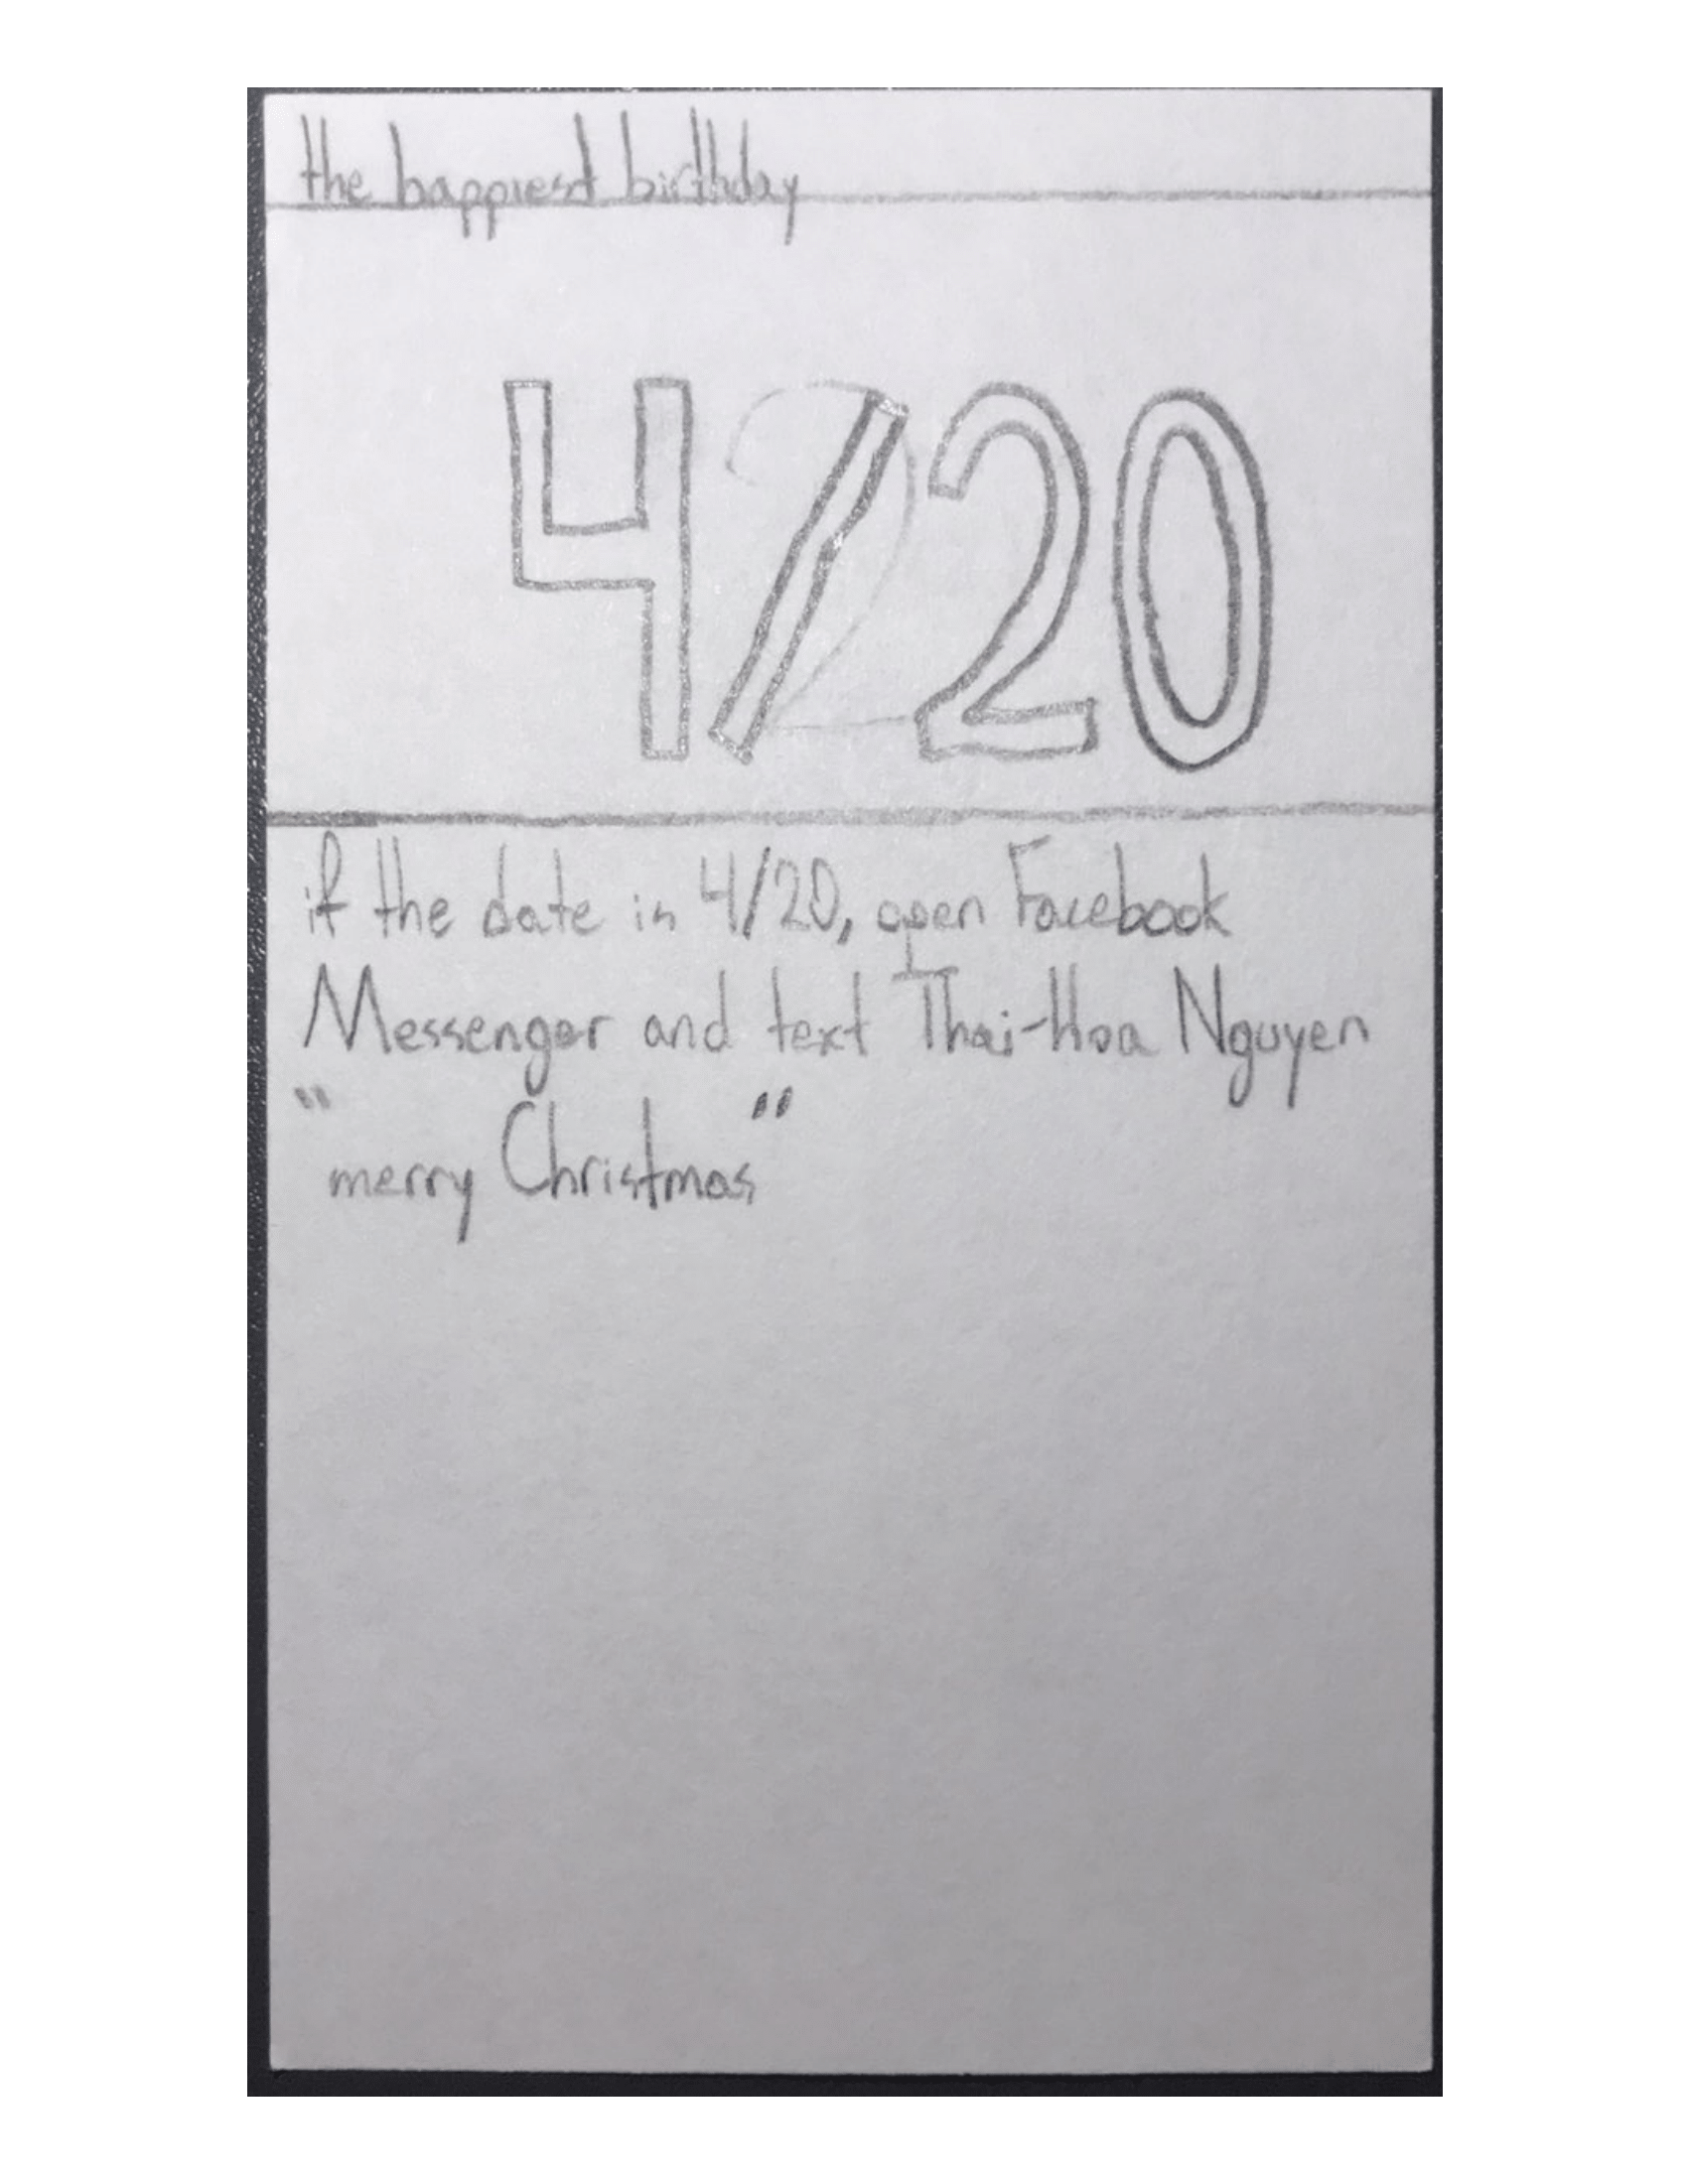 the bappiest birthday
4/20
if the date is 4/20, open Facebook
Messenger and text Thai-Hoa Nguyen
"merry Christmas"